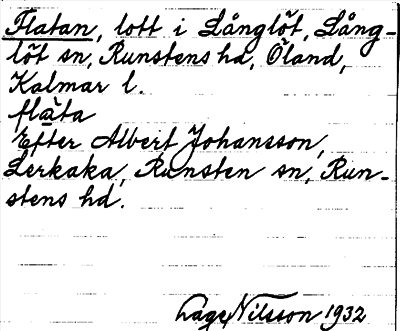 Flatan, lott i Långlöt, Lång-
löt sn, Runstens hd, Öland,
Kalmar l.
flàta
Efter Albert Johansson,
Lerkaka, Runsten sn, Run-
stens hd.
Låge Nilsson 1932